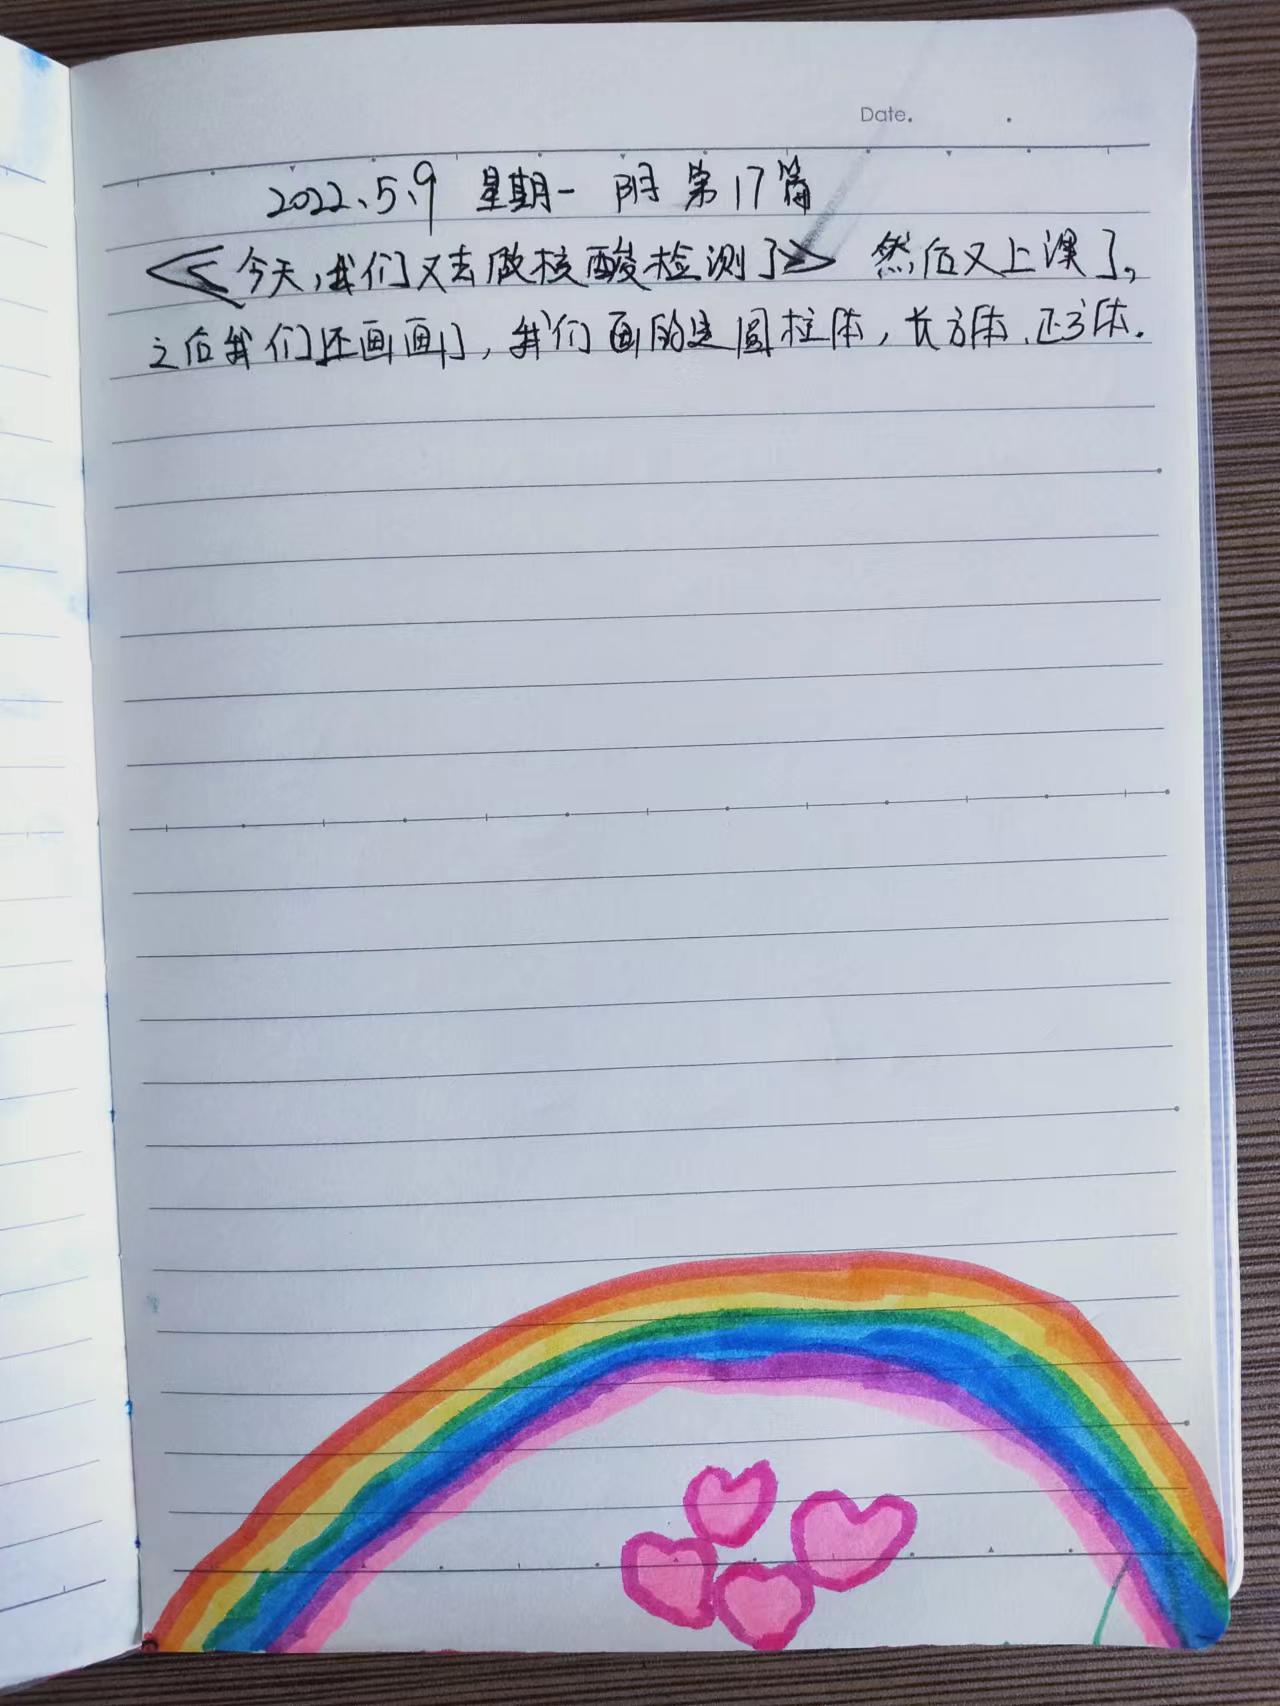 Date.
2022、5、9 星期一 阴 第17篇
<今天,我们又去做核酸检测了> 然后又上课了,
之后我们还画画了,我们画的是圆柱体,长方体、正方体.